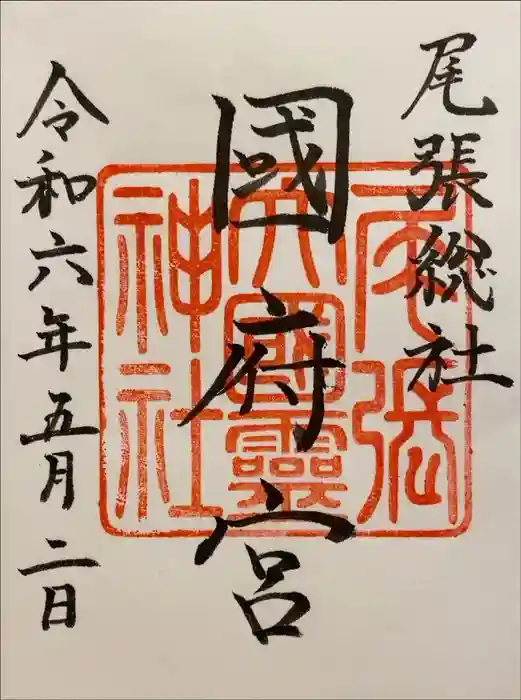 尾張総社
國府宮
令和六年五月二日
尾張
大國霊
神社